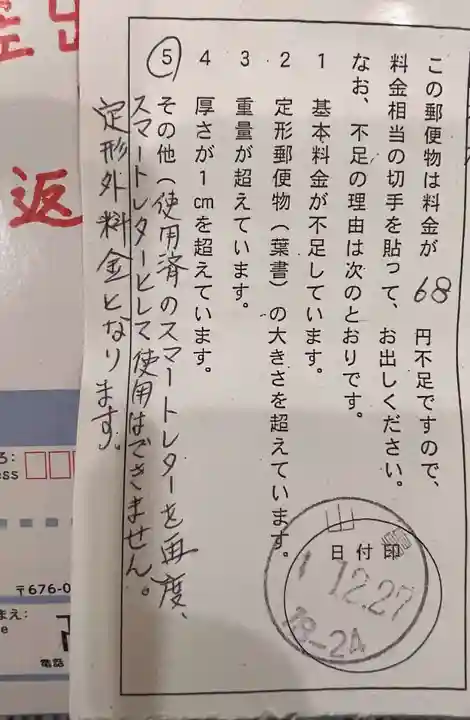 この郵便物は料金が 68 円不足ですので、
料金相当の切手を貼って、お出しください。
なお、不足の理由は次のとおりです。
1 基本料金が不足しています。
2 定形郵便物(葉書)の大きさを超えています。
3 重量が超えています。
4 厚さが1cmを超えています。
5 その他(使用済のスマートレターを再度、
スマートレターとして使用はできません。
定形外料金となります。
日付印
山
12.27
18-24
返
〒676-0
電話